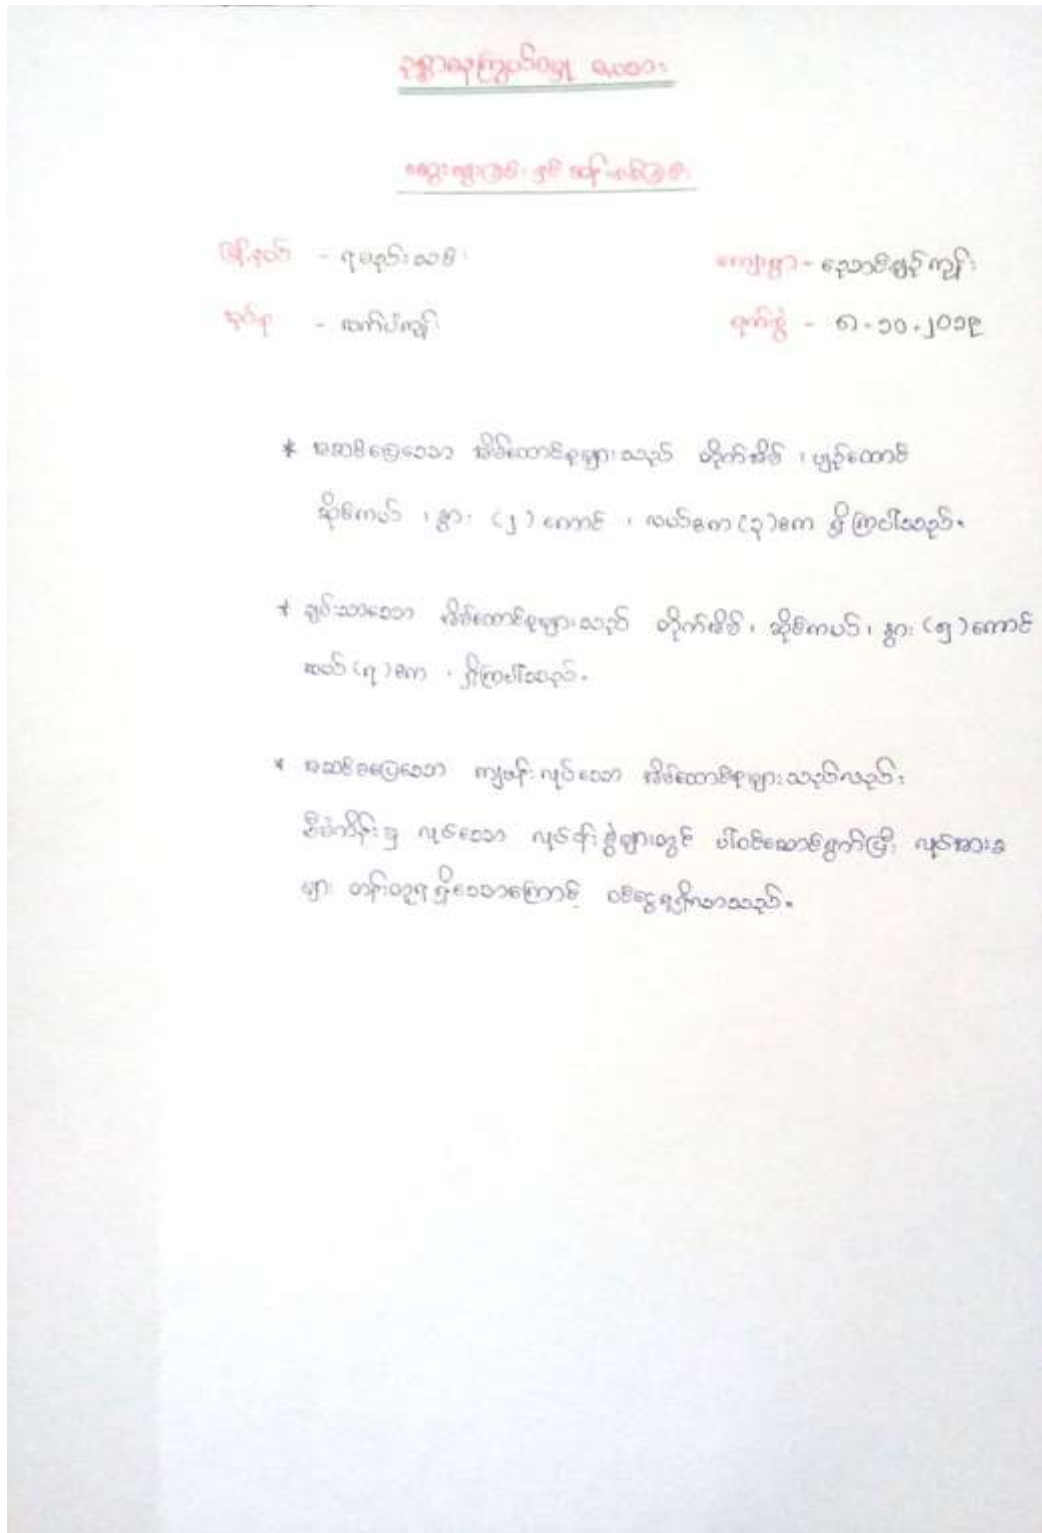 ဥစ္စာဓနကြွယ်ဝမှု
ဆွေးနွေးခြင်း နှင့် ဆန်းစစ်ခြင်း
မြို့နယ် - ရမည်းသင်း ကျေးရွာ -
အုပ်စု - လက်ပံကျွန်း ရက်စွဲ - ၆.၁၀.၂၀၁၉
* အဆင်ပြေသော အိမ်ထောင်စုများသည် တိုက်အိမ် ၊ ပျဉ်ထောင်
ဆိုင်ကယ် ၊ နွား (၂) ကောင် ၊ လယ်ဧက (၃) ဧက ရှိကြပါသည်။
* ချမ်းသာသော အိမ်ထောင်စုများသည် တိုက်အိမ် ၊ ဆိုင်ကယ် ၊ နွား (၅) ကောင်
လယ် (၇) ဧက ၊ ရှိကြပါသည်။
* အဆင်မပြေသော ကျပန်းလုပ်သော အိမ်ထောင်စုများသည်လည်း
စီမံကိန်းမှ လုပ်သော လုပ်ငန်းခွဲများတွင် ပါဝင်ဆောင်ရွက်ပြီး လုပ်အားခ
များ တန်းတူရရှိသောကြောင့် ဝင်ငွေရရှိလာသည်။